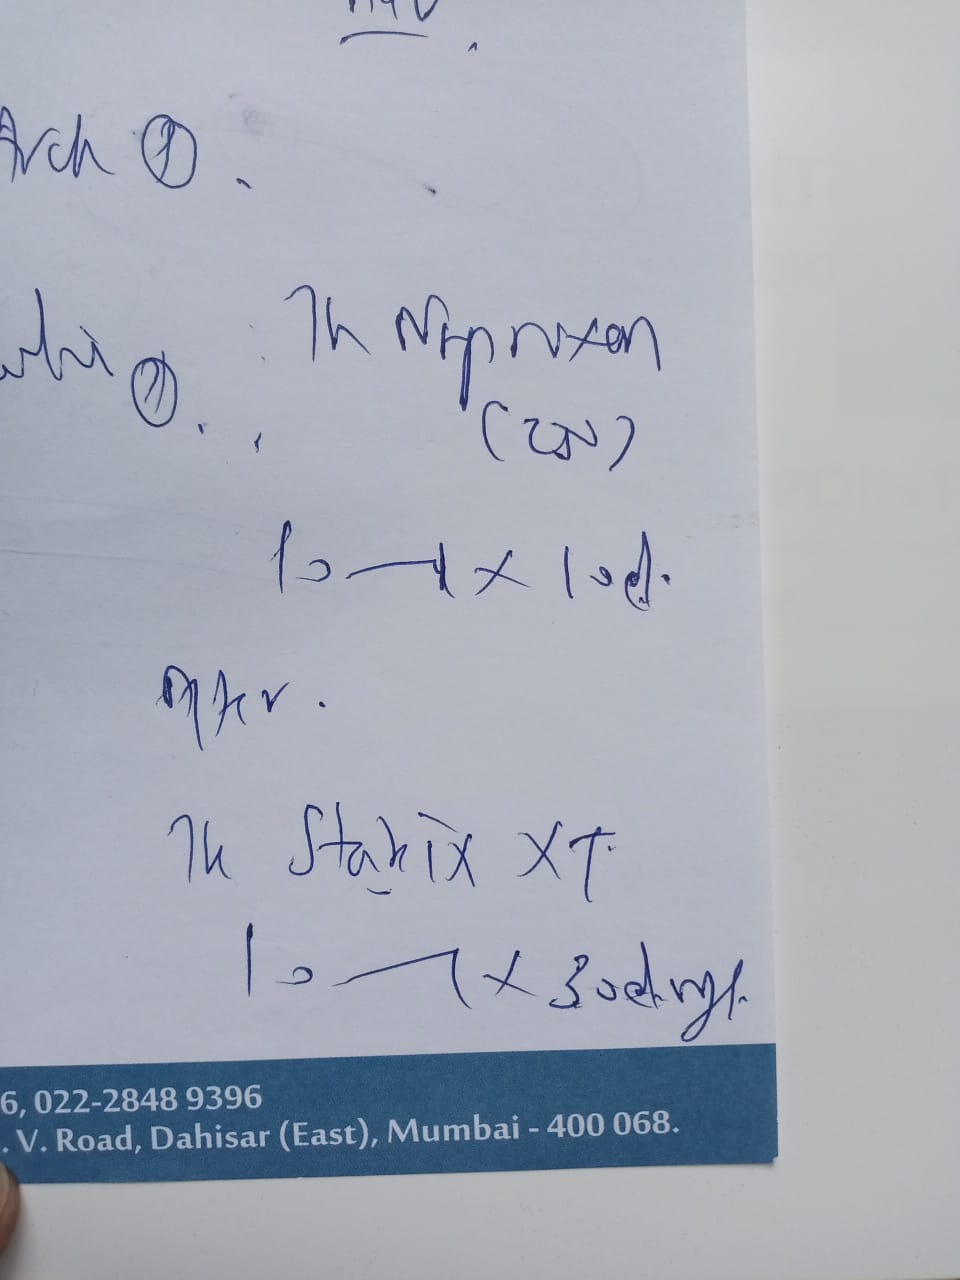 Arch ①.
Tb Naproxen
(250)
1 0 — 1 x 10d.
After.
Tb Stakix XT
1 0 — 1 x 30days.
6, 022-2848 9396
. V. Road, Dahisar (East), Mumbai - 400 068.